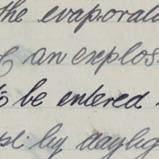 the evaporat
of an explos
to be entered
pt by dayligh